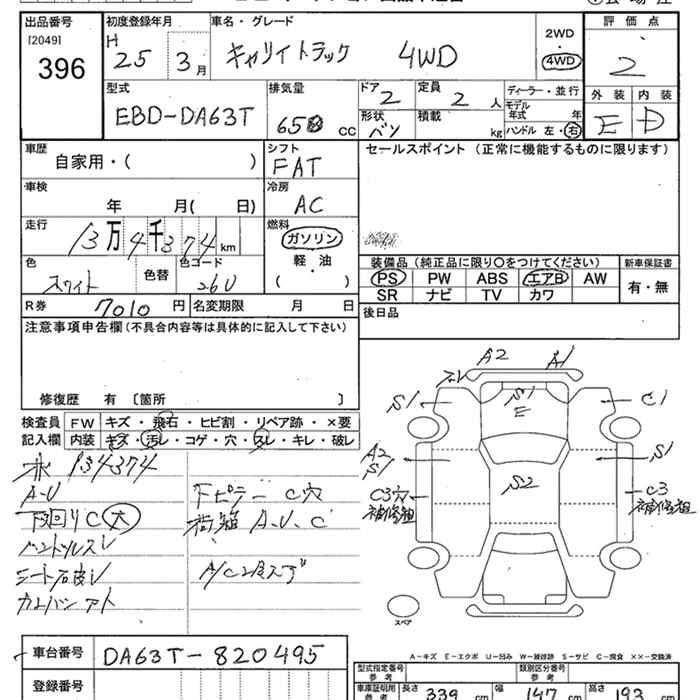 出品番号
[2049]
396
初度登録年月
H 25年 3月
車名・グレード
キャリイトラック 4WD
2WD
・
4WD
評価点
2
型式
EBD-DA63T
排気量
650 cc
ドア
2
定員
2 人
形状
バン
積載
kg
ディーラー・並行
モデル年式 年
ハンドル 左・右
外装
E
内装
D
車歴
自家用・( )
シフト
FAT
セールスポイント (正常に機能するものに限ります)
車検
年 月( 日)
冷房
AC
走行
13万4千374 km
燃料
ガソリン
軽・油
( )
色
ホワイト
色替
色コード
26U
装備品 (純正品に限り○をつけてください)
PS PW ABS エアB AW
SR ナビ TV カワ
新車保証書
有・無
R券
7010 円
名変期限 月 日
後日品
注意事項申告欄 (不具合内容等は具体的に記入して下さい)
修復歴 有 〔箇所 〕
検査員記入欄
FW キズ・飛石・ヒビ割・リペア跡・×要
内装 キズ・汚レ・コゲ・穴・スレ・キレ・破レ
134374
A-U
下回りC大
C穴
A.U.C
A2
A1
S1
S1
E
C1
A2
S1
S2
S1
C3穴
補修箱
C3
補修箱
スペア
車台番号
DA63T-820495
登録番号
A-キズ E-エクボ U-凹み W-補修跡 S-サビ C-腐食 ××-交換済
型式指定番号
参考
類別区分番号
参考
車庫証明用
参考
長さ 339 cm
幅 147 cm
高さ 193 cm